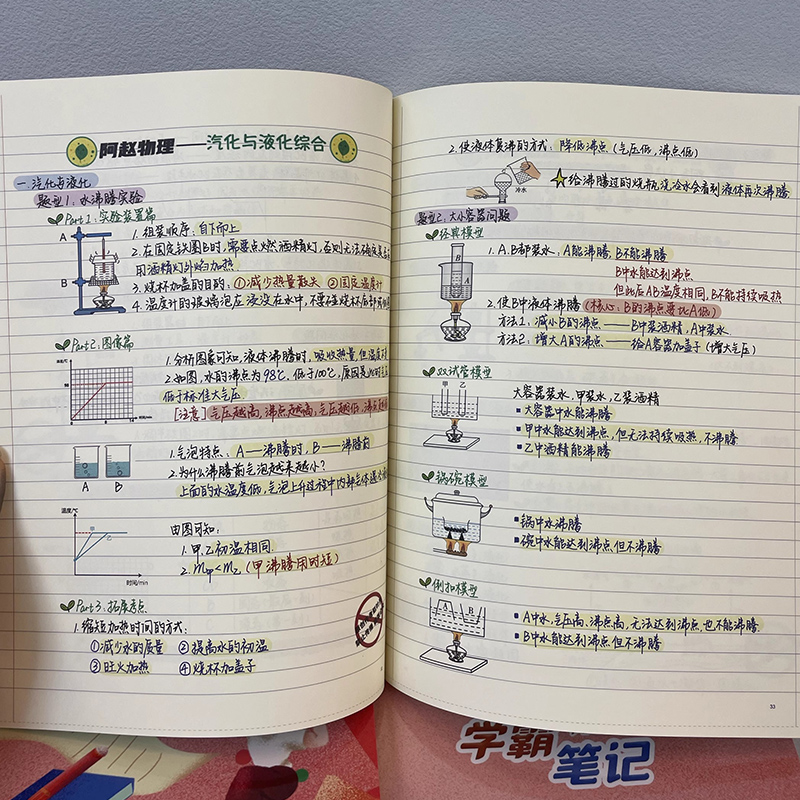 阿赵物理——汽化与液化综合
一.汽化与液化
题型1.水沸腾实验
Part1:实验装置篇
A
B
1.组装顺序:自下而上
2.在固定铁圈B时,需要点燃酒精灯,否则无法确定是否
用酒精灯外焰加热
3.烧杯加盖的目的:①减少热量散失 ②固定温度计
4.温度计的玻璃泡应浸没在水中,不要碰烧杯底部
Part2:图像篇
温度/℃
98
时间/min
1.分析图象可知,液体沸腾时,吸收热量,但温度不
2.如图,水的沸点为98℃,低于100℃,原因是此时气压
低于标准大气压
[注意]气压越高,沸点越高,气压越低,沸点越
A B
1.气泡特点:A——沸腾时,B——沸腾前
2.为什么沸腾前气泡越来越小?
上面的水温度低,气泡上升过程中内部气体遇冷液
温度/℃
甲
乙
时间/min
由图可知:
1.甲.乙初温相同.
2.m甲<m乙(甲沸腾用时短)
Part3.拓展考点
1.缩短加热时间的方式:
①减少水的质量 ②提高水的初温
③旺火加热 ④烧杯加盖子
2.使液体复沸的方式:降低沸点(气压低,沸点低)
冷水
给沸腾过的烧瓶浇冷水会看到液体再次沸腾.
题型2.大小容器问题
经典模型
B
A
1.A.B都装水,A能沸腾,B不能沸腾
B中水能达到沸点
但此后AB温度相同,B不能持续吸热
2.使B中液体沸腾(核心:B的沸点要比A低)
方法1:减小B的沸点——B中装酒精,A中装水.
方法2:增大A的沸点——给A容器加盖子(增大气压)
双试管模型
甲 乙
大容器装水,甲装水,乙装酒精
大容器中水能沸腾
甲中水能达到沸点,但无法持续吸热,不沸腾
乙中酒精能沸腾
锅碗模型
锅中水沸腾
碗中水能达到沸点但不沸腾
倒扣模型
A B
A中水,气压高、沸点高,无法达到沸点,也不能沸腾.
B中水能达到沸点但不沸腾
33
学霸
笔记